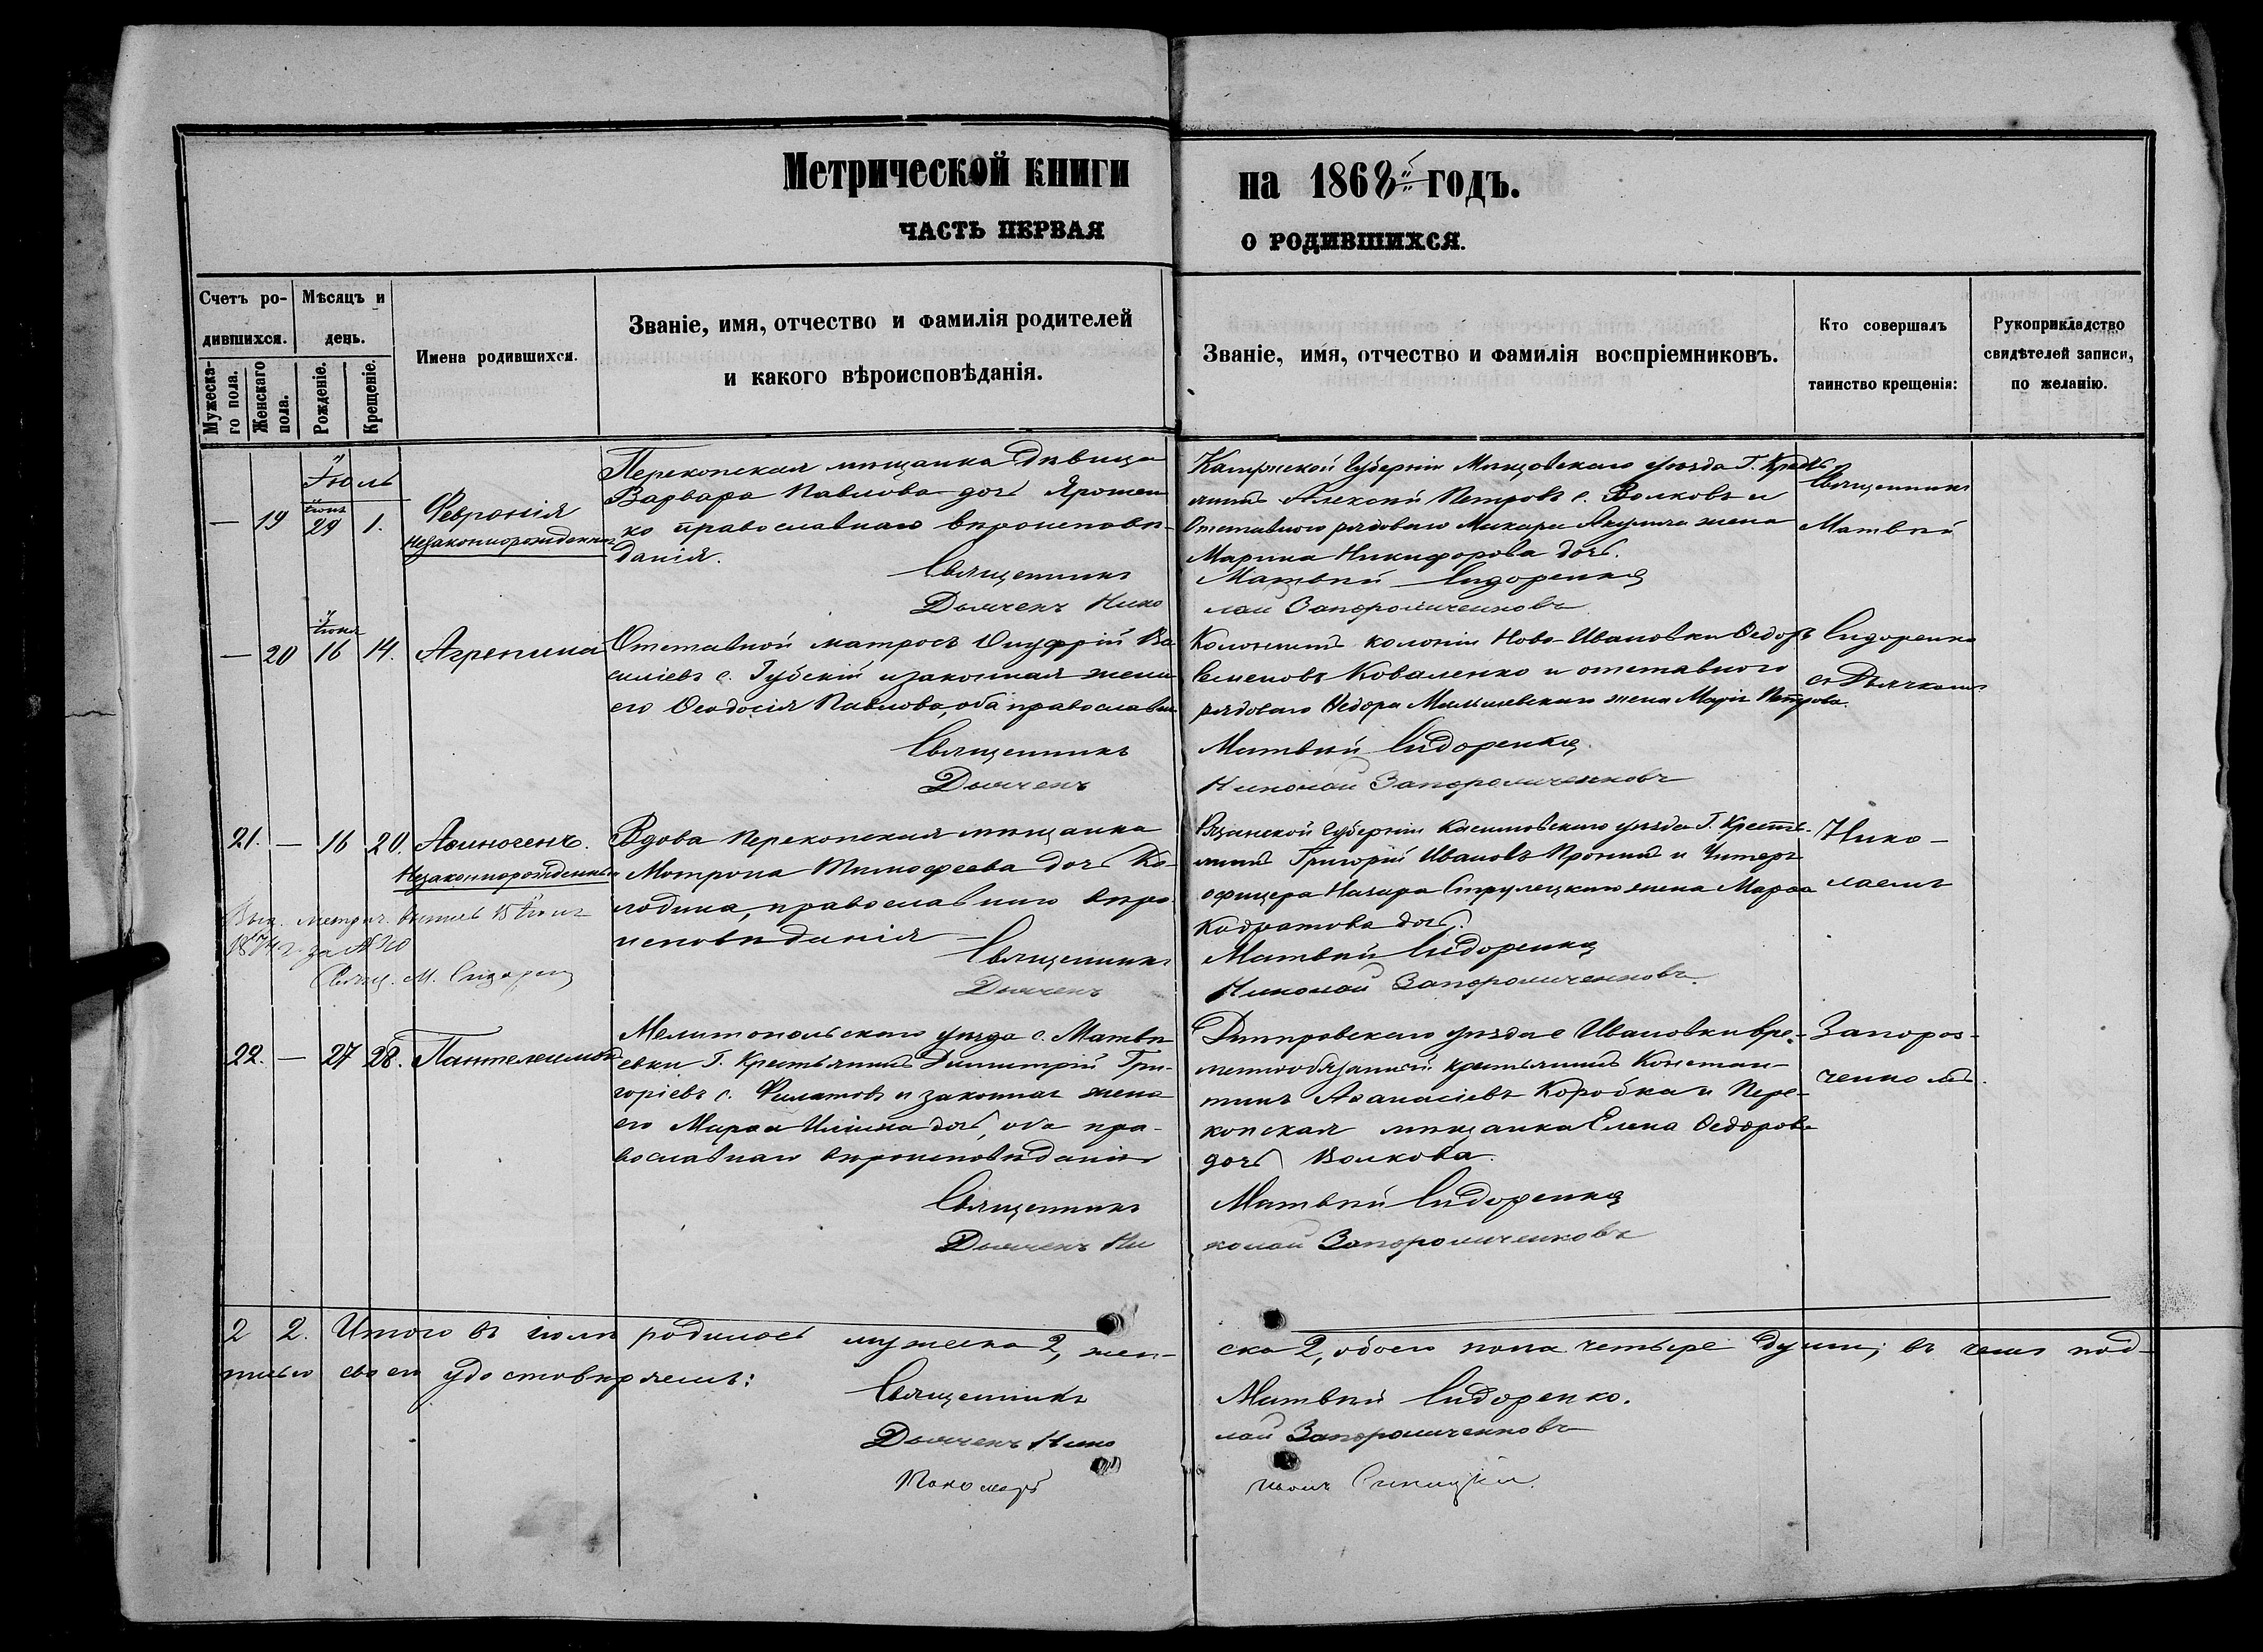 Метрической книги на 1868й годъ.
ЧАСТЬ ПЕРВАЯ О РОДИВШИХСЯ.
Счетъ ро-
дившихся.
Мужеска-
го пола.
Женскаго
пола.
Мѣсяцъ и
день.
Рожденіе.
Крещеніе.
Имена родившихся.
Званіе, имя, отчество и фамилія родителей
и какого вѣроисповѣданія.
Званіе, имя, отчество и фамилія воспріемниковъ.
Кто совершалъ
таинство крещенія:
Рукоприкладство
свидѣтелей записи,
по желанію.
Іюль
— 19
Іюня
29 1.
Февронія
Незаконнорожденная
Перекопская мѣщанка дѣвица
Варвара Павлова дочь Ярошен
ко православнаго вѣроисповѣ-
данія.
Священникъ
Дьячекъ Нико
Калужской Губерніи Мещовскаго уѣзда Г. Кресть
янинъ Алексѣй Петровъ с. Волковъ и
Отставного рядового Макара Якушева жена
Марина Никифорова дочь.
Матвѣй Сидоренко
лай Запорожченковъ
Священникъ
Матвѣй
— 20
Іюня
16 14.
Агрепина
Отставной матросъ Онуфрій Ва
силіевъ с. Губскій и законная жена
его Ѳеодосія Павлова, оба православн.
Священникъ
Дьячекъ
Колонистъ колоніи Ново-Ивановки Ѳедоръ
Семеновъ Коваленко и отставного
рядоваго Ѳедора жена Марія Петрова.
Матвѣй Сидоренко
Николай Запорожченковъ
Сидоренко
съ Дьячкомъ
21. — 16 20. Аѳиногенъ.
Незаконнорожденный
Выд. метрич. выпись 15 Іюня
1874 г. за № 20
Свящ. М. Сидоренко
Вдова Перекопская мѣщанка
Мотрона Тимофеева дочь Ко-
лодина, православнаго вѣро
исповѣданія —
Священникъ
Дьячекъ
Рязанской Губерніи Касимовскаго уѣзда Г. Кресть-
янинъ Григорій Ивановъ Пронинъ и Унтеръ
офицера Назара Струлецкаго жена Марѳа
Кодратова дочь.
Матвѣй Сидоренко
Николай Запорожченковъ.
Нико-
лаемъ
22. — 27 28. Пантелеимонъ
Мелитопольскаго уѣзда с. Матвѣ
евки Г. Крестьянинъ Димитрій Гри-
горіевъ с. Филатовъ и законная жена
его Марѳа Ильина дочь, оба пра-
вославнаго вѣроисповѣданія
Священникъ
Дьячекъ Ни
Днѣпровскаго уѣзда с Ивановки вре-
меннообязанный крестьянинъ Констан-
тинъ Аѳанасіевъ Коробка и Пере-
копская мѣщанка Елена Ѳедорова
дочь Волкова.
Матвѣй Сидоренко
колай Запорожченковъ
Запорож-
ченковъ.
2 2. Итого въ іюлѣ родилось мужеска 2, жен-
ска 2, обоего пола четыре души; въ чемъ под-
писью своею удостовѣряемъ:
Священникъ Матвѣй Сидоренко.
Дьячекъ Николай Запорожченковъ
Пономарь